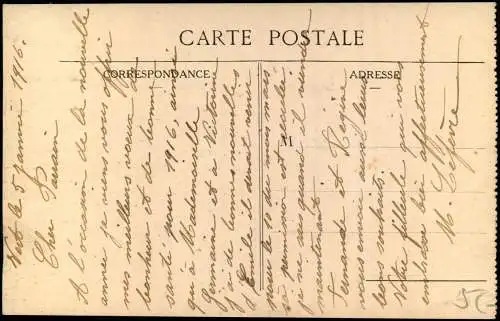 CARTE POSTALE
CORRESPONDANCE
ADRESSE
M
le 5 janvier 1916.
Cher Parrain
A l'occasion de la nouvelle
année je viens vous offrir
mes meilleurs vœux de
bonheur et de bonne
santé pour 1916, ainsi
qu'à Mademoiselle
Germaine et à Victorine
J'ai de bonnes nouvelles
d'Emile il devait venir
pour le 10 du mois mais
sa permission est reculée
je ne sais quand il viendra
maintenant
Fernande et Régina
vous envoie aussi leurs
bons souhaits.
Votre filleule qui vous
embrasse bien affectueusement
M. Lefèvre